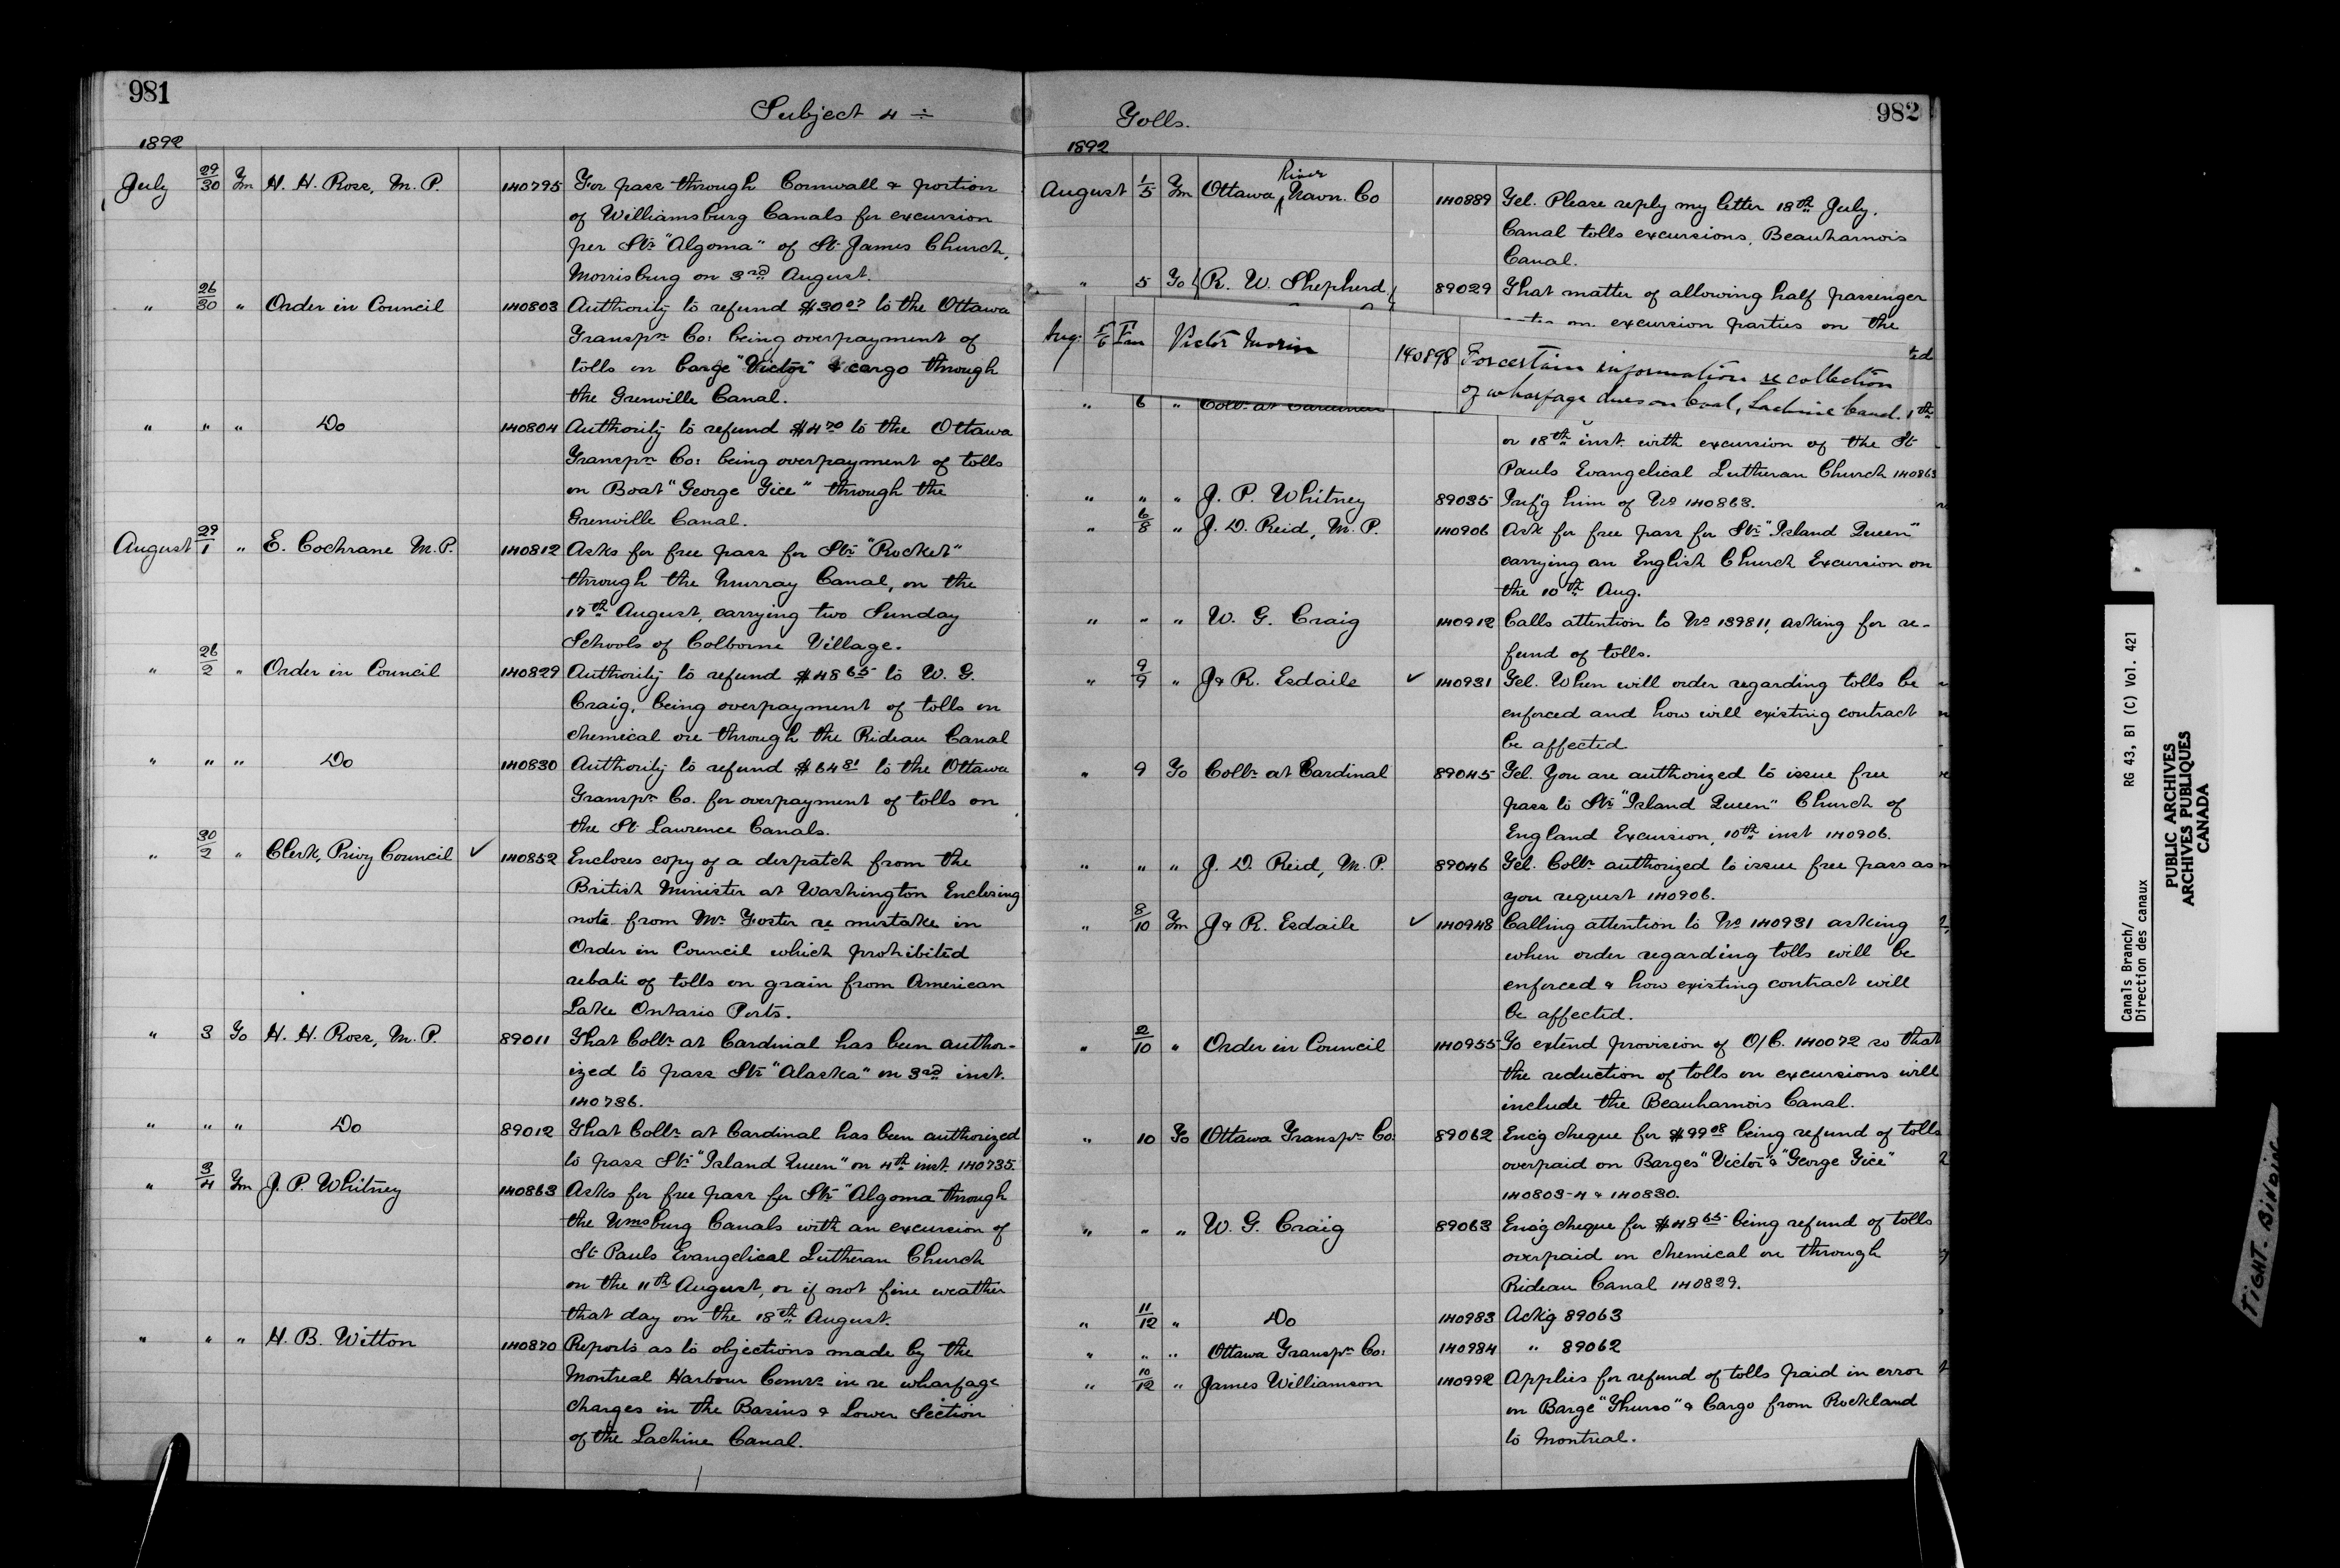 981
Subject 4 ÷
1892
July 29/30 Fm H. H. Ross, M. P. 140795 For pass through Cornwall & portion
of Williamsburg Canals for excursion
per Str "Algoma" of St James Church,
Morrisburg on 3rd August.
" 26/30 " Order in Council 140803 Authority to refund $30 07 to the Ottawa
Transpn Co: being overpayment of
tolls on barge "Victor" & cargo through
the Grenville Canal.
" " " Do 140804 Authority to refund $4 20 to the Ottawa
Transpn Co: being overpayment of tolls
on Boat "George Tice" through the
Grenville Canal.
August 29/1 " E. Cochrane M. P. 140812 Asks for free pass for Str "Rocket"
through the Murray Canal, on the
17th August, carrying two Sunday
Schools of Colborne Village.
" 26/2 " Order in Council 140829 Authority to refund $48 65 to W. G.
Craig, being overpayment of tolls on
chemical ore through the Rideau Canal
" " " Do 140830 Authority to refund $64 81 to the Ottawa
Transpn Co. for overpayment of tolls on
the St Lawrence Canals.
" 30/2 " Clerk, Privy Council ✓ 140852 Encloses copy of a despatch from the
British Minister at Washington Enclosing
note from Mr Foster re mistake in
Order in Council which prohibited
rebate of tolls on grain from American
Lake Ontario Ports.
" 3 To H. H. Ross, M. P. 89011 That Collr at Cardinal has been author-
ized to pass Str "Alaska" on 3rd inst.
140736.
" " " Do 89012 That Collr at Cardinal has been authorized
to pass Str "Island Queen" on 4th inst. 140735.
" 3/4 Fm J. P. Whitney 140863 Asks for free pass for Str "Algoma through
the Wmsburg Canals with an excursion of
St Pauls Evangelical Lutheran Church
on the 11th August, or if not fine weather
that day on the 18th August.
" " " H. B. Witton 140870 Reports as to objections made by the
Montreal Harbour Comrs in re wharfage
charges in the Basins & Lower Section
of the Lachine Canal.
982
Tolls.
1892
August 1/5 Fm Ottawa River Navn. Co 140889 Tel. Please reply my letter 18th July.
Canal tolls excursions, Beauharnois
Canal.
" 5 To R. W. Shepherd 89029 That matter of allowing half passenger
on excursion parties on the
Aug. 5/6 Fm Victor Morin 140898 For certain information re collection
of wharfage dues on Coal, Lachine Canal.
" 6 " Collr at
or 18th inst. with excursion of the St
Pauls Evangelical Lutheran Church 140863
" " " J. P. Whitney 89035 Inf'g him of No 140863.
" 6/8 " J. D. Reid, M. P. 140906 Ask for free pass for Str "Island Queen"
carrying an English Church Excursion on
the 10th Aug.
" " " W. G. Craig 140912 Calls attention to No 139811, asking for re-
fund of tolls.
" 9/9 " J & R. Esdaile ✓ 140931 Tel. When will order regarding tolls be
enforced and how will existing contract
be affected
" 9 To Collr at Cardinal 89045 Tel. You are authorized to issue free
pass to Str "Island Queen" Church of
England Excursion, 10th inst 140906.
" " " J. D. Reid, M. P. 89046 Tel. Collr authorized to issue free pass as
you request 140906.
" 8/10 Fm J & R. Esdaile ✓ 140948 Calling attention to No 140931 asking
when order regarding tolls will be
enforced & how existing contract will
be affected.
" 2/10 " Order in Council 140955 To extend provision of O/C. 140072 so that
the reduction of tolls on excursions will
include the Beauharnois Canal.
" 10 To Ottawa Transpn Co: 89062 Enc'g cheque for $99 08 being refund of tolls
overpaid on Barges "Victor" & "George Tice"
140803-4 & 140830.
" " " W. G. Craig 89063 Enc'g cheque for $48 65 being refund of tolls
overpaid on chemical ore through
Rideau Canal 140829.
" 11/12 " Do 140983 Ack'g 89063
" " " Ottawa Transpn Co: 140984 " 89062
" 10/12 " James Williamson 140992 Applies for refund of tolls paid in error
on Barge "Thurso" & Cargo from Rockland
to Montreal.
Canals Branch/
Direction des canaux
RG 43, B1 (C) Vol. 421
PUBLIC ARCHIVES
ARCHIVES PUBLIQUES
CANADA
TIGHT BINDING